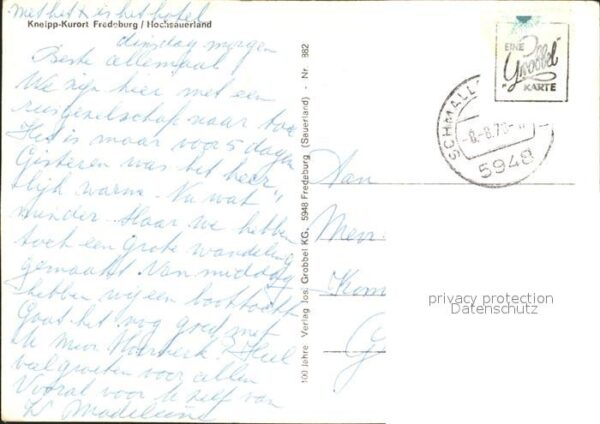 met het x is het hotel
Kneipp-Kurort Fredeburg / Hochsauerland
dinsdag morgen
Beste allemaal
We zijn hier met een
reisgezelschap naar toe
Het is maar voor 5 dagen
Gisteren was het heer,,
lijk warm. Nu wat
minder. Maar we hebben
toch een grote wandeling
gemaakt. Van middag
hebben wij een boottocht
Gaat het nog goed met
U Mevr ? Heel
veel groeten voor allen
Vooral voor U zelf van
Madeleine
100 Jahre Verlag Jos. Grobbel KG., 5948 Fredeburg (Sauerland) - Nr. 882
EINE
Grobbel
KARTE
SCHMALL
-8.-8.7
5948
Aan
Mevr.
privacy protection
Datenschutz